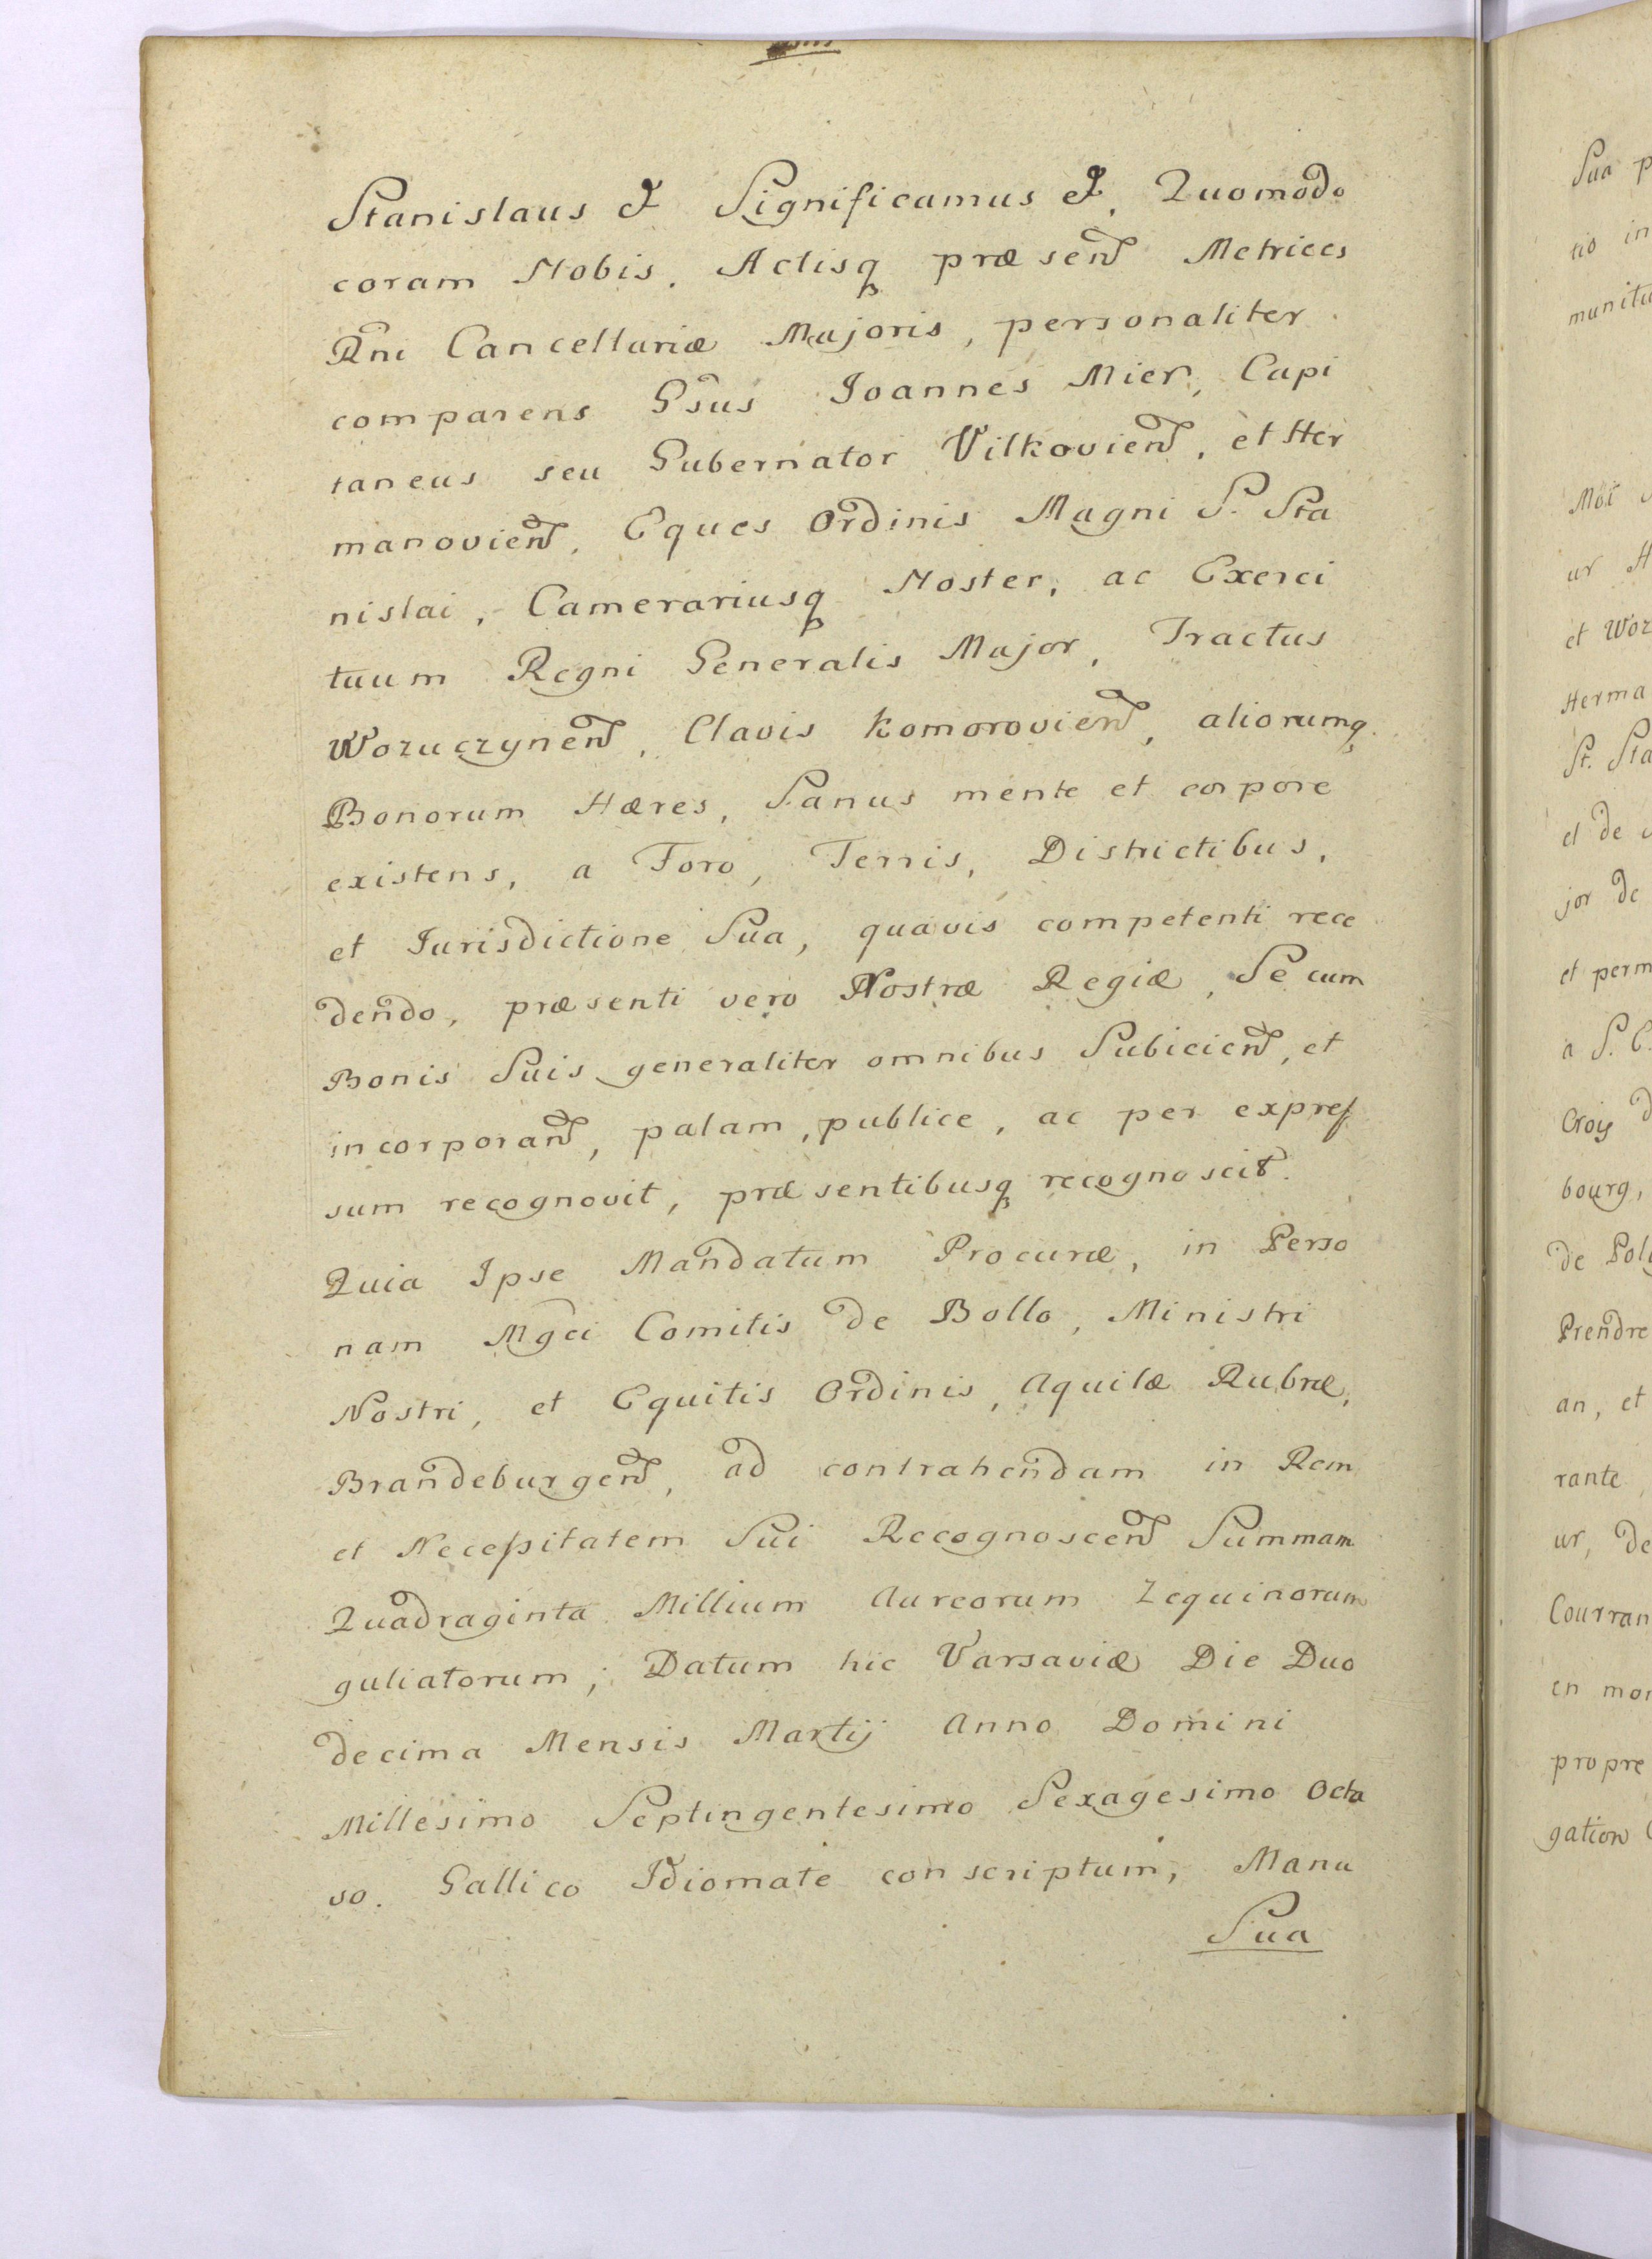 Stanislaus & Significamus &, Quomodo
coram Nobis, Actisq præsen̄ Metrices
Rni Cancellariæ Majoris, personaliter
comparens Gsus Joannes Mier, Capi
taneus seu Gubernator Vilkovien̄, et Her
manovien̄, Eques Ordinis Magni S. Sta
nislai, Camerariusq Noster, ac Exerci
tuum Regni Generalis Major, Tractus
Wozuczynen̄, Clavis Komorovien̄, aliorumq
Bonorum Hæres, Sanus mente et corpore
existens, a Foro, Terris, Districtibus,
et Jurisdictione Sua, quavis competenti rece
dendo, præsenti vero Nostræ Regiæ, Se cum
Bonis Suis generaliter omnibus Subiicien̄, et
incorporan̄, palam, publice, ac per expres
sum recognovit, præsentibusq recognoscit.
Quia Ipse Mandatum Procuræ, in Perso
nam Mgci Comitis de Bollo, Ministri
Nostri, et Equitis Ordinis, Aquilæ Rubræ,
Brandeburgen̄, ad contrahendam in Rem
et Necessitatem Sui Recognoscen̄ Summam
Quadraginta Millium Aureorum Zequinorum
guliatorum; Datum hic Varsaviæ Die Duo
decima Mensis Martij Anno Domini
Millesimo Septingentesimo Sexagesimo Octa
vo. Gallico Idiomate conscriptum, Manu
Sua
Sua
tio in
et Woz
Herma
St. Sta
et de
jor de
et perm
a S.
Croy
bourg,
de Pol
Prendre
an, et
rante
ur, de
Courran
en mon
propre
gation